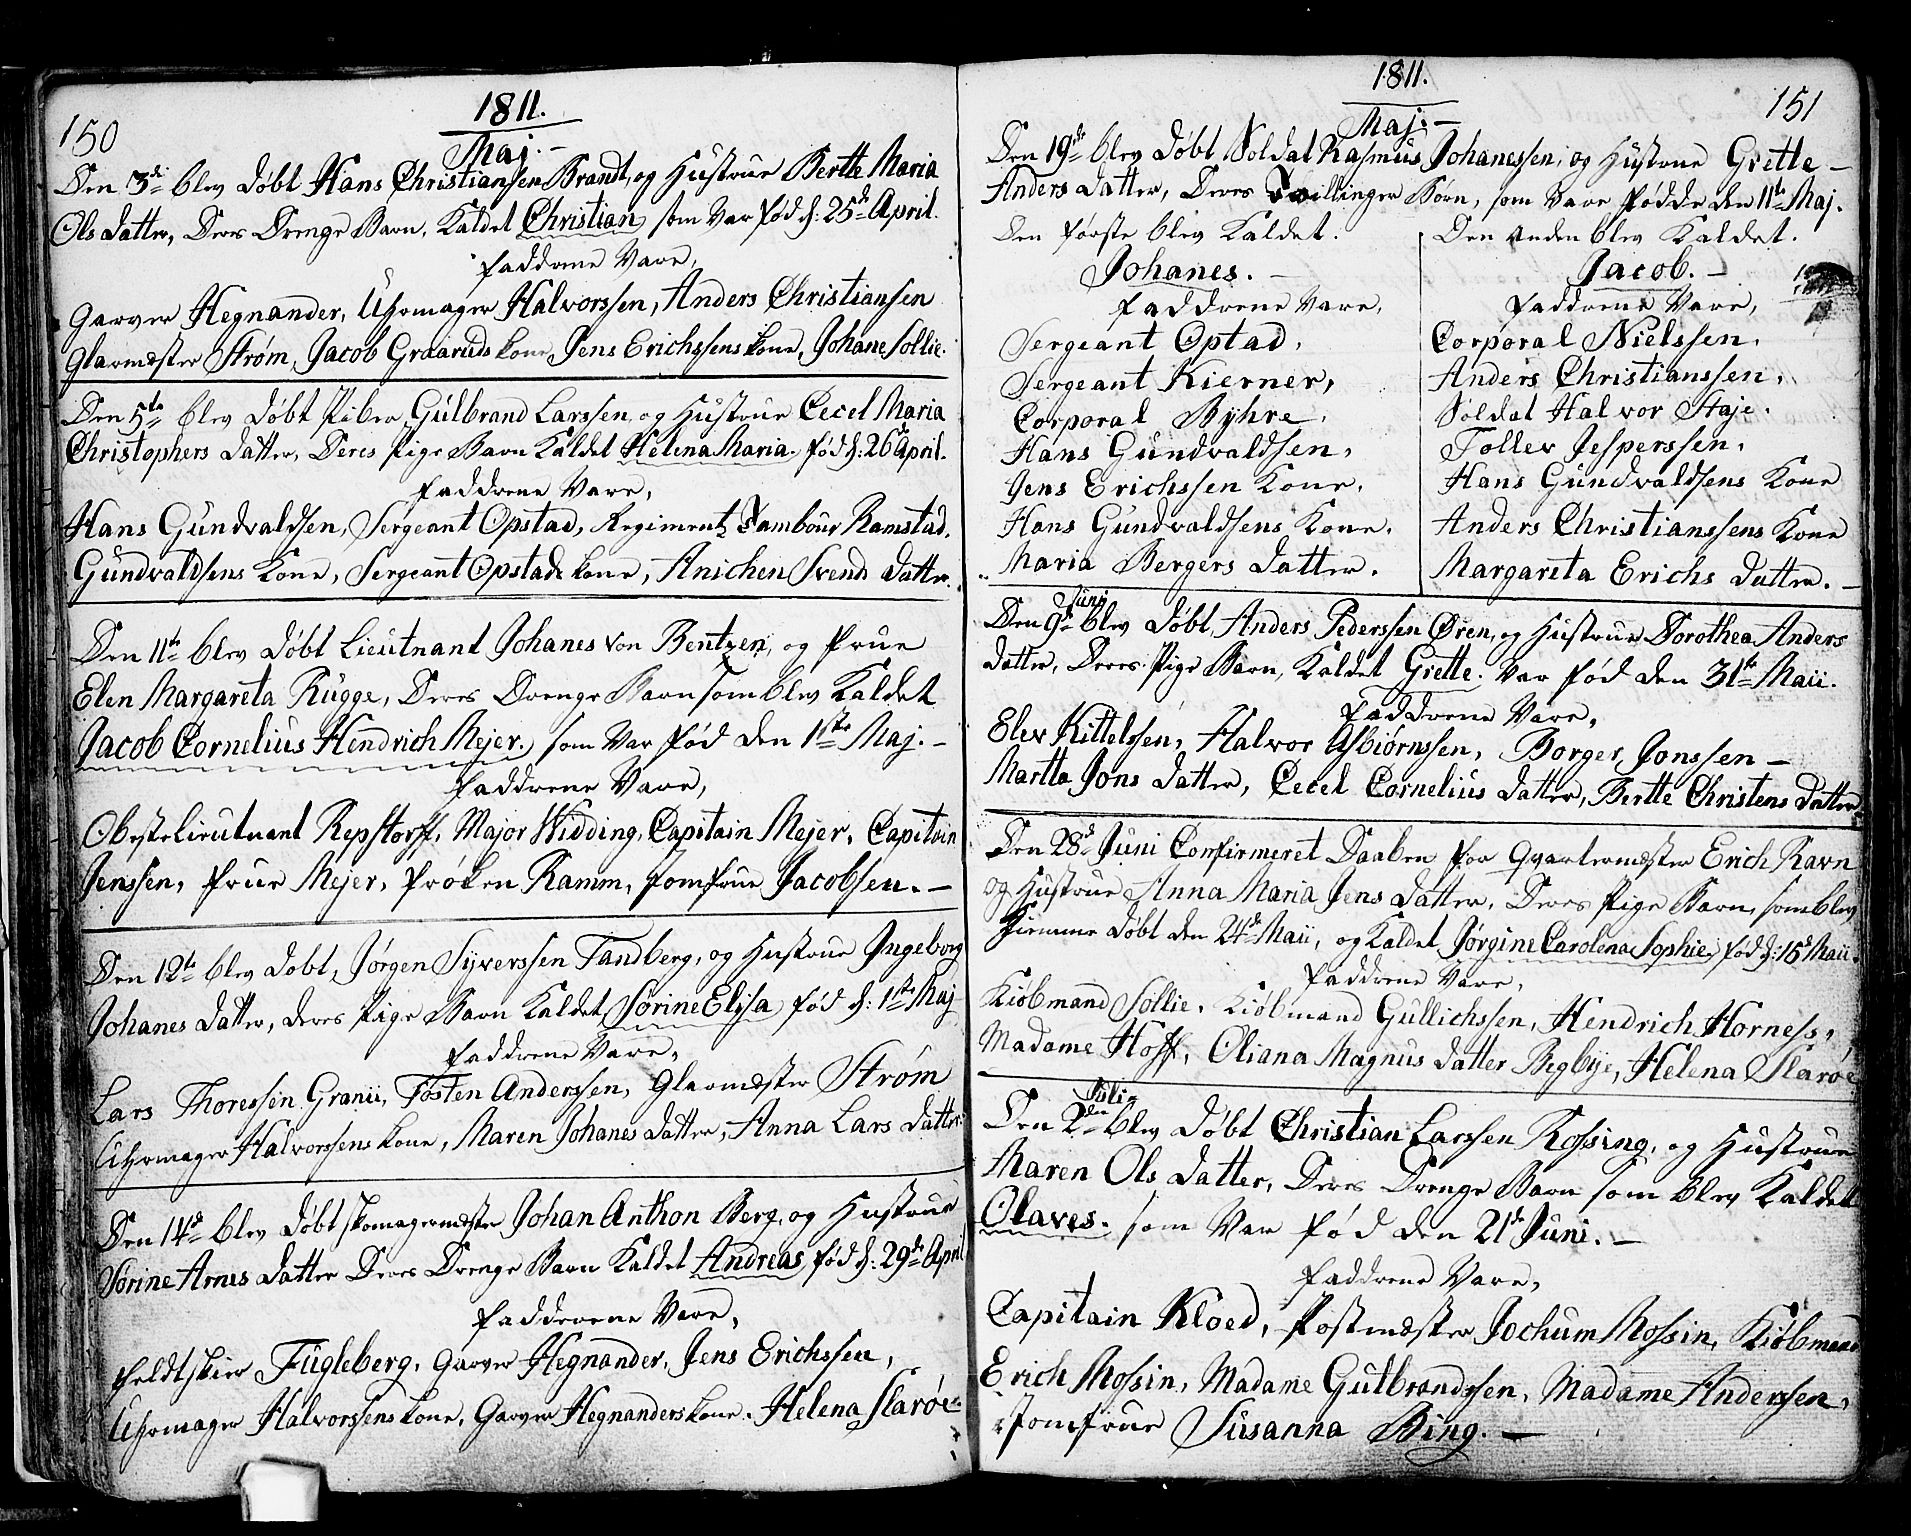 150
1811.
Maj.
Den 3di blev døbt Hans Christiansen Brandt, og Hustrue Berthe Maria
Ols datter, Deres Drenge Barn, Kaldet Christian, som Var fød d: 25de April.
faddrene Vare,
Garver Hegnander, Uhrmager Halvorssen, Anders Christiansen
Glarmæster Strøm, Jacob Graaruds kone, Jens Erichssens kone, Johane Sollie.
Den 5te blev døbt Piber Gulbrand Larssen, og Hustrue Cecel Maria
Christophers datter, Deres Pige Barn Kaldet Helena Maria. fød d: 26de April.
faddrene Vare,
Hans Gundvaldsen, Sergeant Opstad, Regiments Tambour Ramstad.
Gundvaldsens Kone, Sergeant Opstads kone, Anichen Svends datter.
Den 11te blev døbt Lieutnant Johanes von Bentzen, og frue
Elen Margareta Rugge, Deres Drenge Barn som blev Kaldet
Jacob Cornelius Hendrich Mejer. som Var fød den 1ste Maj.
faddrene Vare,
Obestelieutnant Repstorff, Major Widding, Capitain Mejer, Capitain
Jenssen, frue Mejer, frøken Ramm, Jomfrue Jacobsen.
Den 12te blev døbt, Jørgen Syverssen Tandberg, og Hustrue Ingeborg
Johanes datter, deres Pige Barn Kaldet Sørine Elisa fød d: 1ste Maj
faddrene Vare,
Lars Thoressen Granii, Tosten Anderssen, Glarmæster Strøm
Uhrmager Halvorssens kone, Maren Johanes datter, Anna Lars datter.
Den 14de blev døbt skomagermæster Johan Anthon Berg, og Hustrue
Sørine Arnes datter Deres Drenge Barn Kaldet Andreas, fød d: 29de April
fadderene Vare,
feldtskier Fugleberg, Garver Hegnander, Jens Erichssen,
Uhrmager Halvorssens kone, Garver Hegnanders kone. Helena Slarøe
1811.
151
Maj.
Den 19de blev døbt, Soldat Rasmus Johanessen, og Hustrue Grette
Anders datter, Deres Tvillinger Børn, som Vare fødde den 11te Maj.
Den første blev Kaldet.
Johanes.
faddrene Vare,
Sergeant Opstad,
Sergeant Kierner,
Corporal Byhre,
Hans Gundvaldsen,
Jens Erichssen Kone,
Hans Gundvaldsens Kone,
Maria Bergers datter.
Den anden blev Kaldet.
Jacob.
faddrene Vare,
Corporal Nielssen,
Anders Christianssen,
Soldat Halvor Staje,
Tollev Jesperssen,
Hans Gundvaldsens Kone
Anders Christianssens Kone
Margareta Erichs datter.
Juni
Den 9de blev døbt, Anders Pederssen Øren, og Hustrue Dorothea Anders
datter, Deres Pige Barn, Kaldet Grette. Var fød den 31te Maii.
faddrene Vare,
Elev Kittelssen, Halvor Asbiørnssen, Borger Jonssen
Martta Jons datter, Cecel Cornelius datter, Bertte Christens datter
Den 28de Juni Confirmeret Daaben for Qvartermæster Erich Ravn
og Hustrue Anna Maria Jens datter, Deres Pige Barn, som blev
hiemme døbt den 24de Maii, og Kaldet, Jørgine Carolena Sophie, fød d: 15de Maii.
faddrene Vare,
Kiøbmand Sollie, Kiøbmand Gullichssen, Hendrich Horness,
Madame Hoff, Oliana Magnus datter Begbye, Helena Slarøe
Juli
Den 2den blev døbt Christian Larssen Rossing, og Hustrue
Maren Ols datter, Deres Drenge Barn som blev Kaldet
Olaves. som Var fød den 21de Juni.
faddrene Vare,
Capitain Kloed, Postmæster Jochum Mossin, Kiøbmand
Erich Mossin, Madame Gulbrandssen, Madame Anderssen,
Jomfrue Susanna Bing.